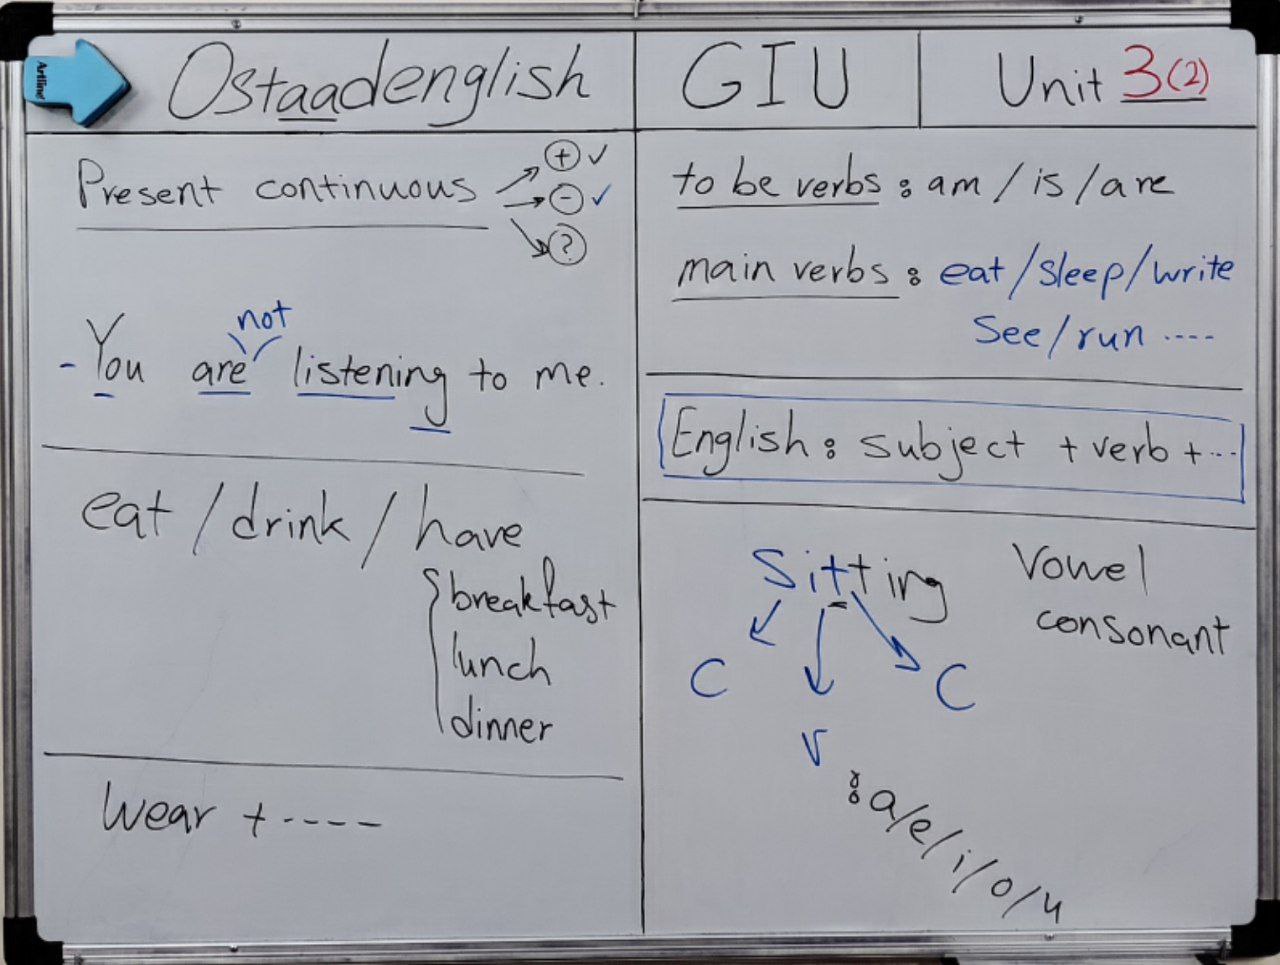 Artline
Ostaadenglish
GIU
Unit 3(2)
Present continuous
+ ✓
- ✓
?
not
- You are listening to me.
eat / drink / have
breakfast
lunch
dinner
Wear + ----
to be verbs : am / is / are
main verbs : eat / sleep / write
See / run ....
English : subject + verb + ...
Sitting
C
V
C
: a/e/i/o/u
Vowel
consonant